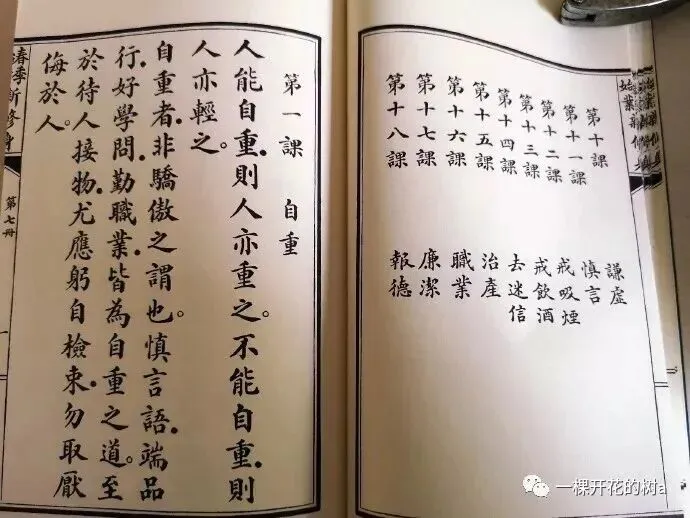 第十課 謙虛
第十一課 慎言
第十二課 戒吸煙
第十三課 戒飲酒
第十四課 去迷信
第十五課 治產
第十六課 職業
第十七課 廉潔
第十八課 報德
第一課 自重
人能自重。則人亦重之。不能自重。則
人亦輕之。
自重者。非驕傲之謂也。慎言語。端品
行。好學問。勤職業。皆為自重之道。至
於待人接物。尤應躬自檢束。勿取厭
侮於人。
春季新修身
第七冊
一棵开花的树a